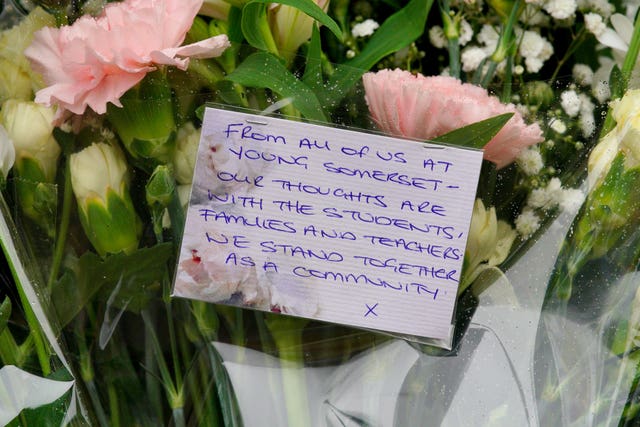 FROM ALL OF US AT
YOUNG SOMERSET -
OUR THOUGHTS ARE
WITH THE STUDENTS,
FAMILIES AND TEACHERS.
WE STAND TOGETHER
AS A COMMUNITY.
X